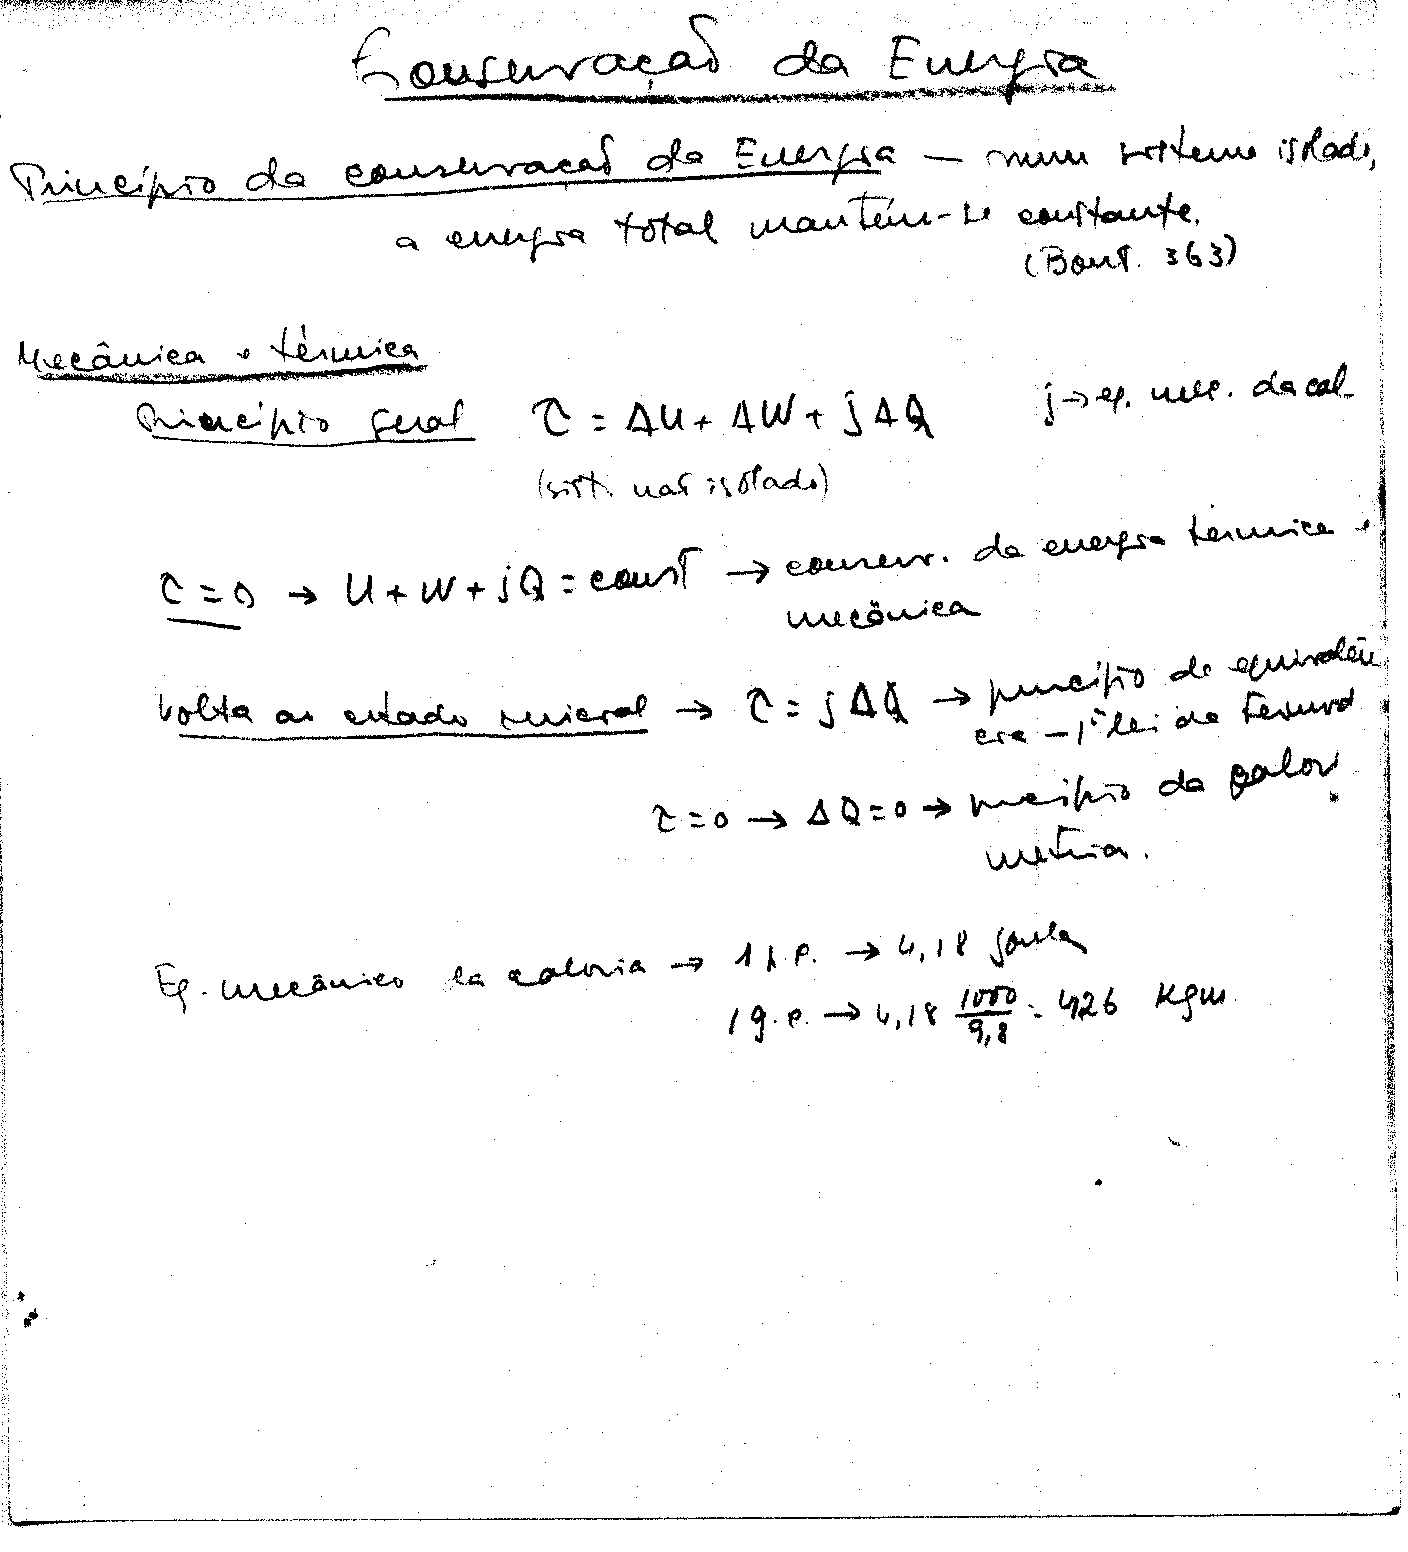 Conservação da Energia
Princípio da conservação da Energia — num sistema isolado,
a energia total mantém-se constante.
(Bont. 363)
Mecânica e térmica
Princípio geral τ = ΔU + ΔW + jΔQ j → eq. mec. da cal
(sist. não isolado)
τ = 0 → U + W + jQ = const → conserv. da energia térmica e
mecânica
Volta ao estado inicial → τ = jΔQ → princípio de equivalên
cia — 1ª lei da Termod
τ = 0 → ΔQ = 0 → princípio da calori
metria.
Eq. mecânico da caloria → 1 p.c. → 4,18 joules
1 g.c. → 4,18 1000/9,8 = 426 Kgm